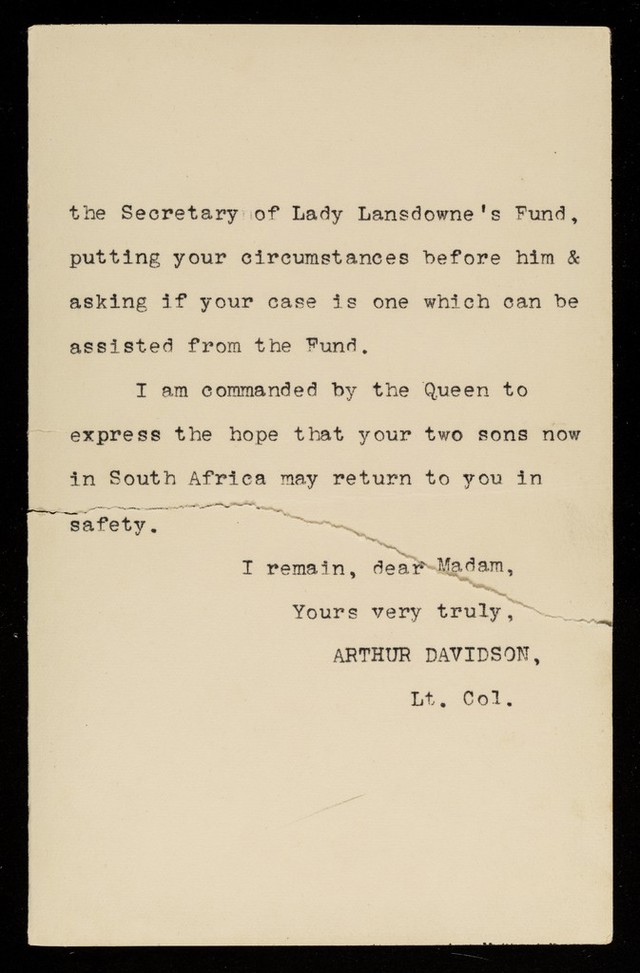 the Secretary of Lady Lansdowne's Fund,
putting your circumstances before him &
asking if your case is one which can be
assisted from the Fund.
I am commanded by the Queen to
express the hope that your two sons now
in South Africa may return to you in
safety.
I remain, dear Madam,
Yours very truly,
ARTHUR DAVIDSON,
Lt. Col.